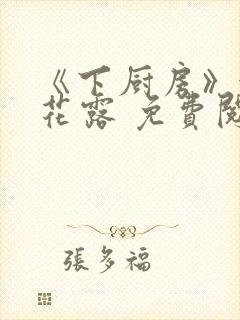 《下厨房》
花露 免費閱
張多福